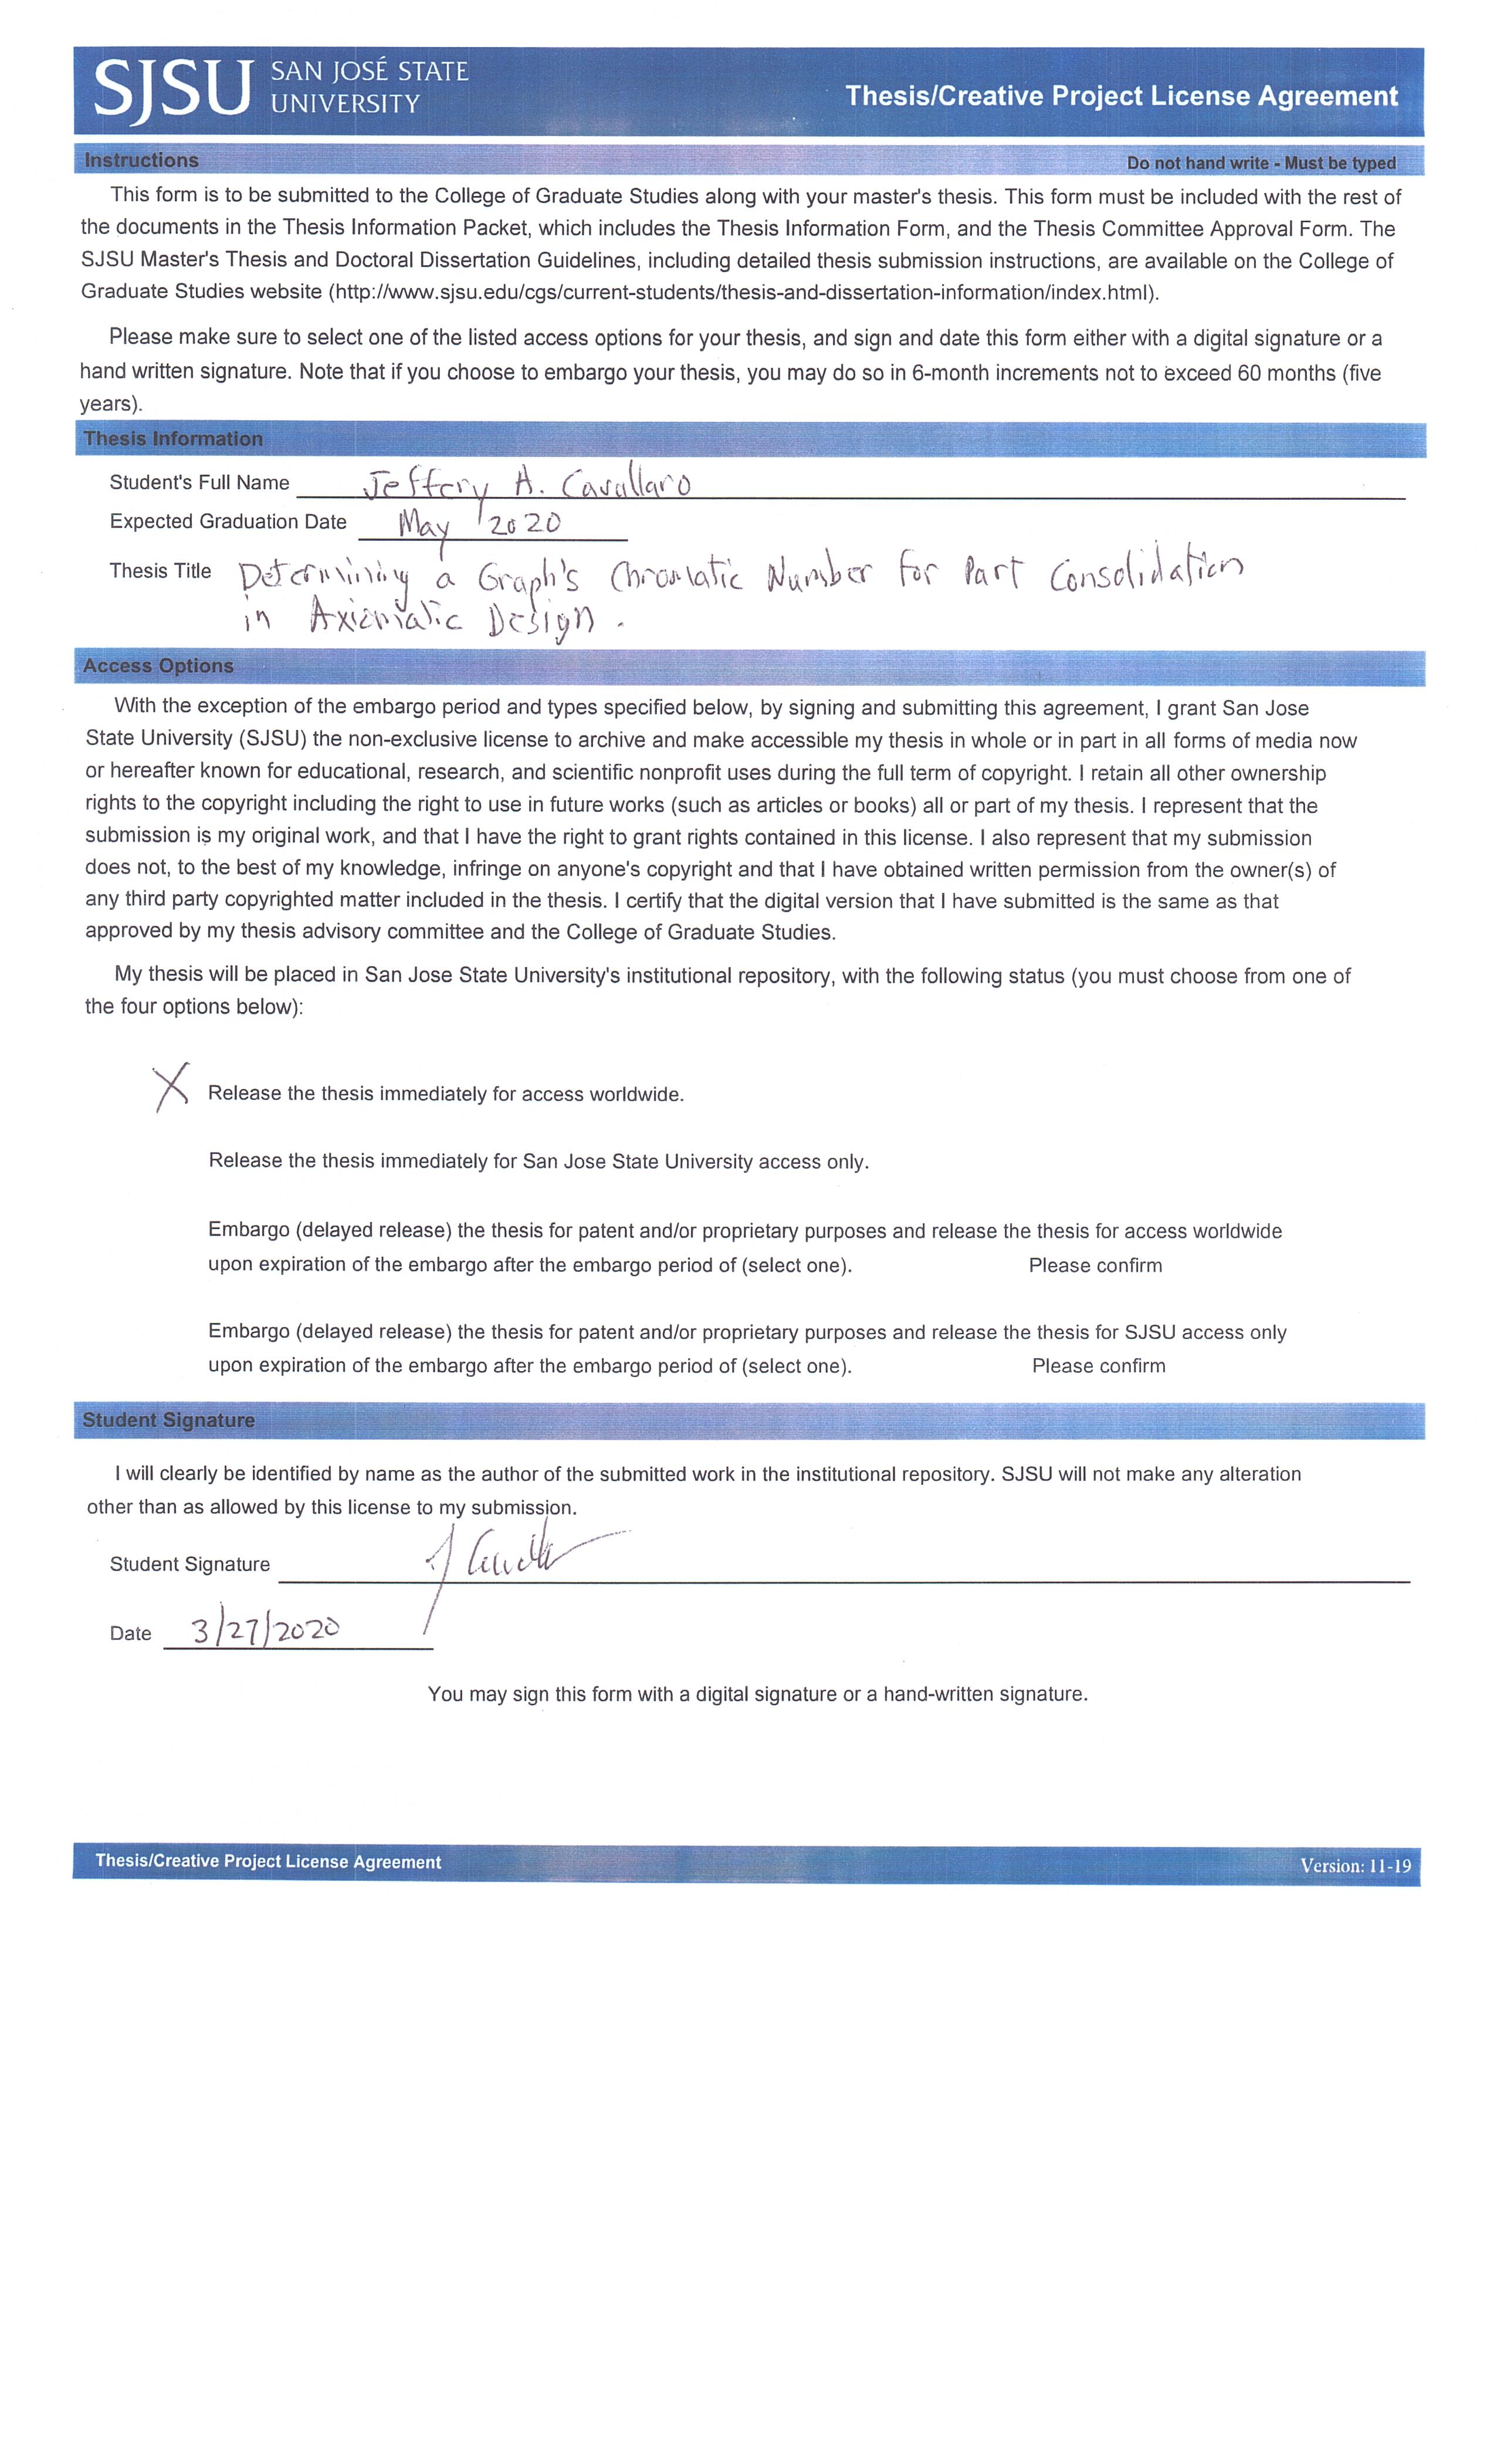 SJSU SAN JOSÉ STATE
UNIVERSITY
Thesis/Creative Project License Agreement
Instructions Do not hand write - Must be typed
This form is to be submitted to the College of Graduate Studies along with your master's thesis. This form must be included with the rest of
the documents in the Thesis Information Packet, which includes the Thesis Information Form, and the Thesis Committee Approval Form. The
SJSU Master's Thesis and Doctoral Dissertation Guidelines, including detailed thesis submission instructions, are available on the College of
Graduate Studies website (http://www.sjsu.edu/cgs/current-students/thesis-and-dissertation-information/index.html).
Please make sure to select one of the listed access options for your thesis, and sign and date this form either with a digital signature or a
hand written signature. Note that if you choose to embargo your thesis, you may do so in 6-month increments not to exceed 60 months (five
years).
Thesis Information
Student's Full Name Jeffery A. Cavallaro
Expected Graduation Date May 2020
Thesis Title Determining a Graph's Chromatic Number for Part Consolidation
in Axiomatic Design.
Access Options
With the exception of the embargo period and types specified below, by signing and submitting this agreement, I grant San Jose
State University (SJSU) the non-exclusive license to archive and make accessible my thesis in whole or in part in all forms of media now
or hereafter known for educational, research, and scientific nonprofit uses during the full term of copyright. I retain all other ownership
rights to the copyright including the right to use in future works (such as articles or books) all or part of my thesis. I represent that the
submission is my original work, and that I have the right to grant rights contained in this license. I also represent that my submission
does not, to the best of my knowledge, infringe on anyone's copyright and that I have obtained written permission from the owner(s) of
any third party copyrighted matter included in the thesis. I certify that the digital version that I have submitted is the same as that
approved by my thesis advisory committee and the College of Graduate Studies.
My thesis will be placed in San Jose State University's institutional repository, with the following status (you must choose from one of
the four options below):
X Release the thesis immediately for access worldwide.
Release the thesis immediately for San Jose State University access only.
Embargo (delayed release) the thesis for patent and/or proprietary purposes and release the thesis for access worldwide
upon expiration of the embargo after the embargo period of (select one). Please confirm
Embargo (delayed release) the thesis for patent and/or proprietary purposes and release the thesis for SJSU access only
upon expiration of the embargo after the embargo period of (select one). Please confirm
Student Signature
I will clearly be identified by name as the author of the submitted work in the institutional repository. SJSU will not make any alteration
other than as allowed by this license to my submission.
Student Signature
Date 3/27/2020
You may sign this form with a digital signature or a hand-written signature.
Thesis/Creative Project License Agreement Version: 11-19